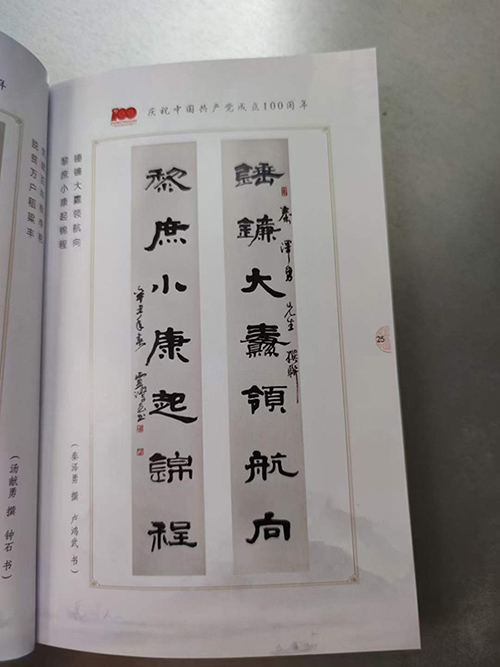 100
庆祝中国共产党成立100周年
錘鐮大纛領航向
秦泽勇先生撰联
黎庶小康起錦程
辛丑年夏
锤镰大纛领航向
黎庶小康起锦程
(秦泽勇 撰 卢鸿武 书)
25
贸万户稻粱丰
(汤献勇 撰 钟石 书)
年